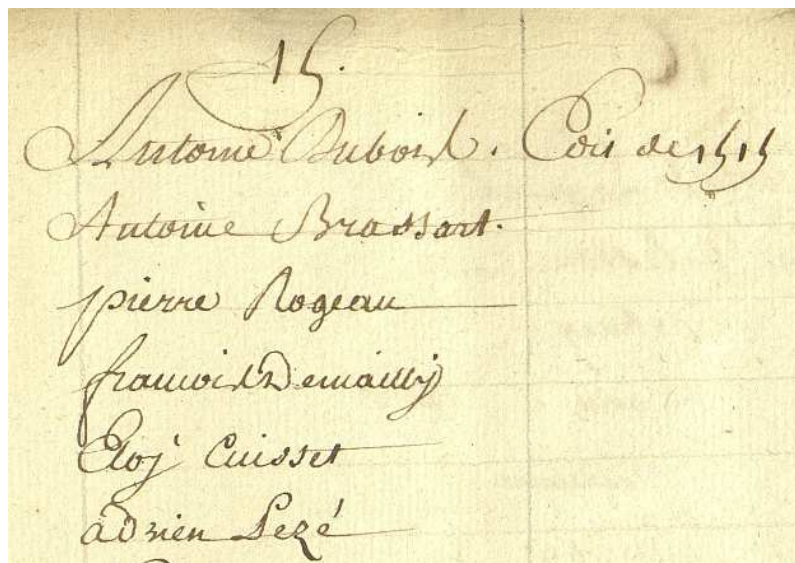 15.
Antoine Dubois. Cois de 1515
Antoine Brassart.
pierre Rogeau
francois Demailly
Eloy Cuisset
adrien Lezé